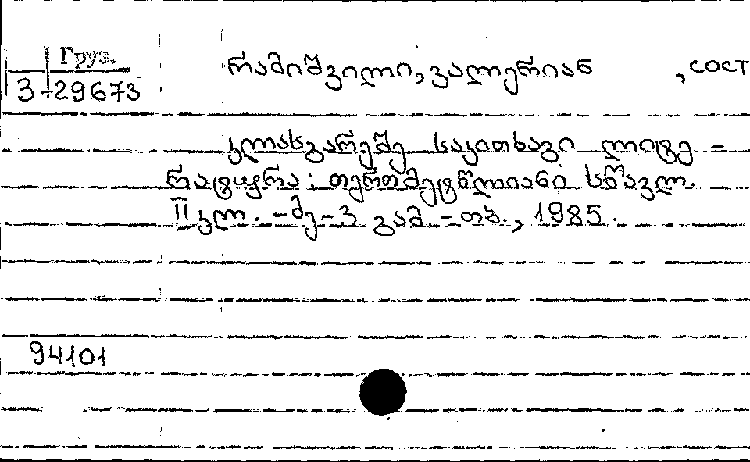 Груз.
3-29673
რამიშვილი, ვალერიან , сост
კლასგარეშე საკითხავი ლიტე-
რატურა: თერთმეტწლიანი სწავლ.
II კლ. -მე-3 გამ.-თბ., 1985.
94101